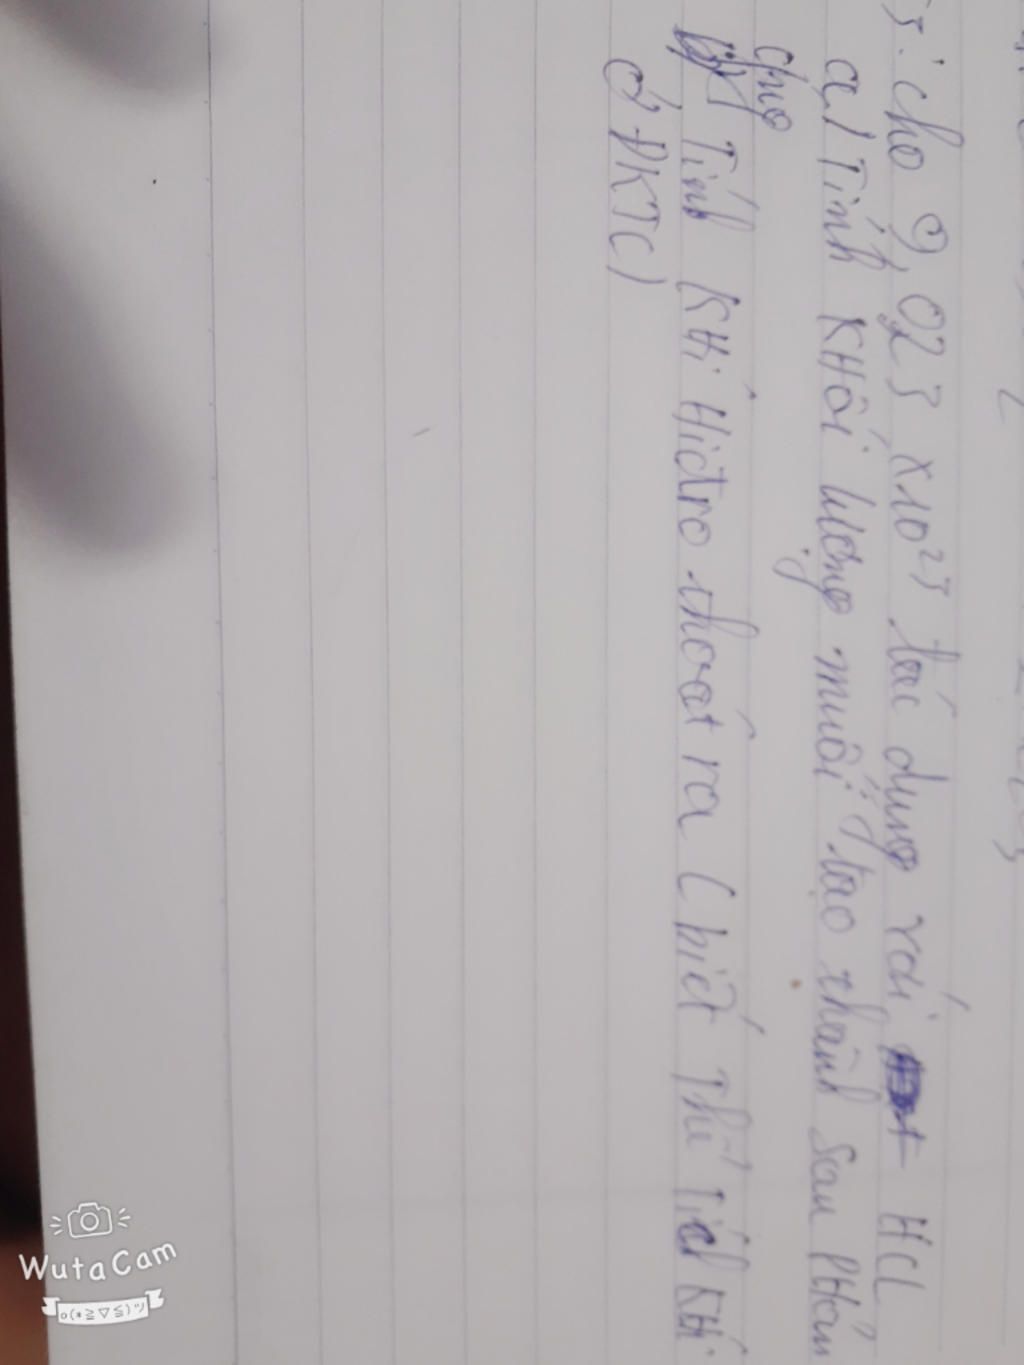 5. cho 9,023 x 10²³ tác dụng với HCl
a, Tính KHối lượng muối tạo thành sau PHản
ứng
b, Tính KHí Hiđro thoát ra (biết Thể Tích KHí
ở ĐKTC)
WutaCam
o(*≧▽≦)ツ